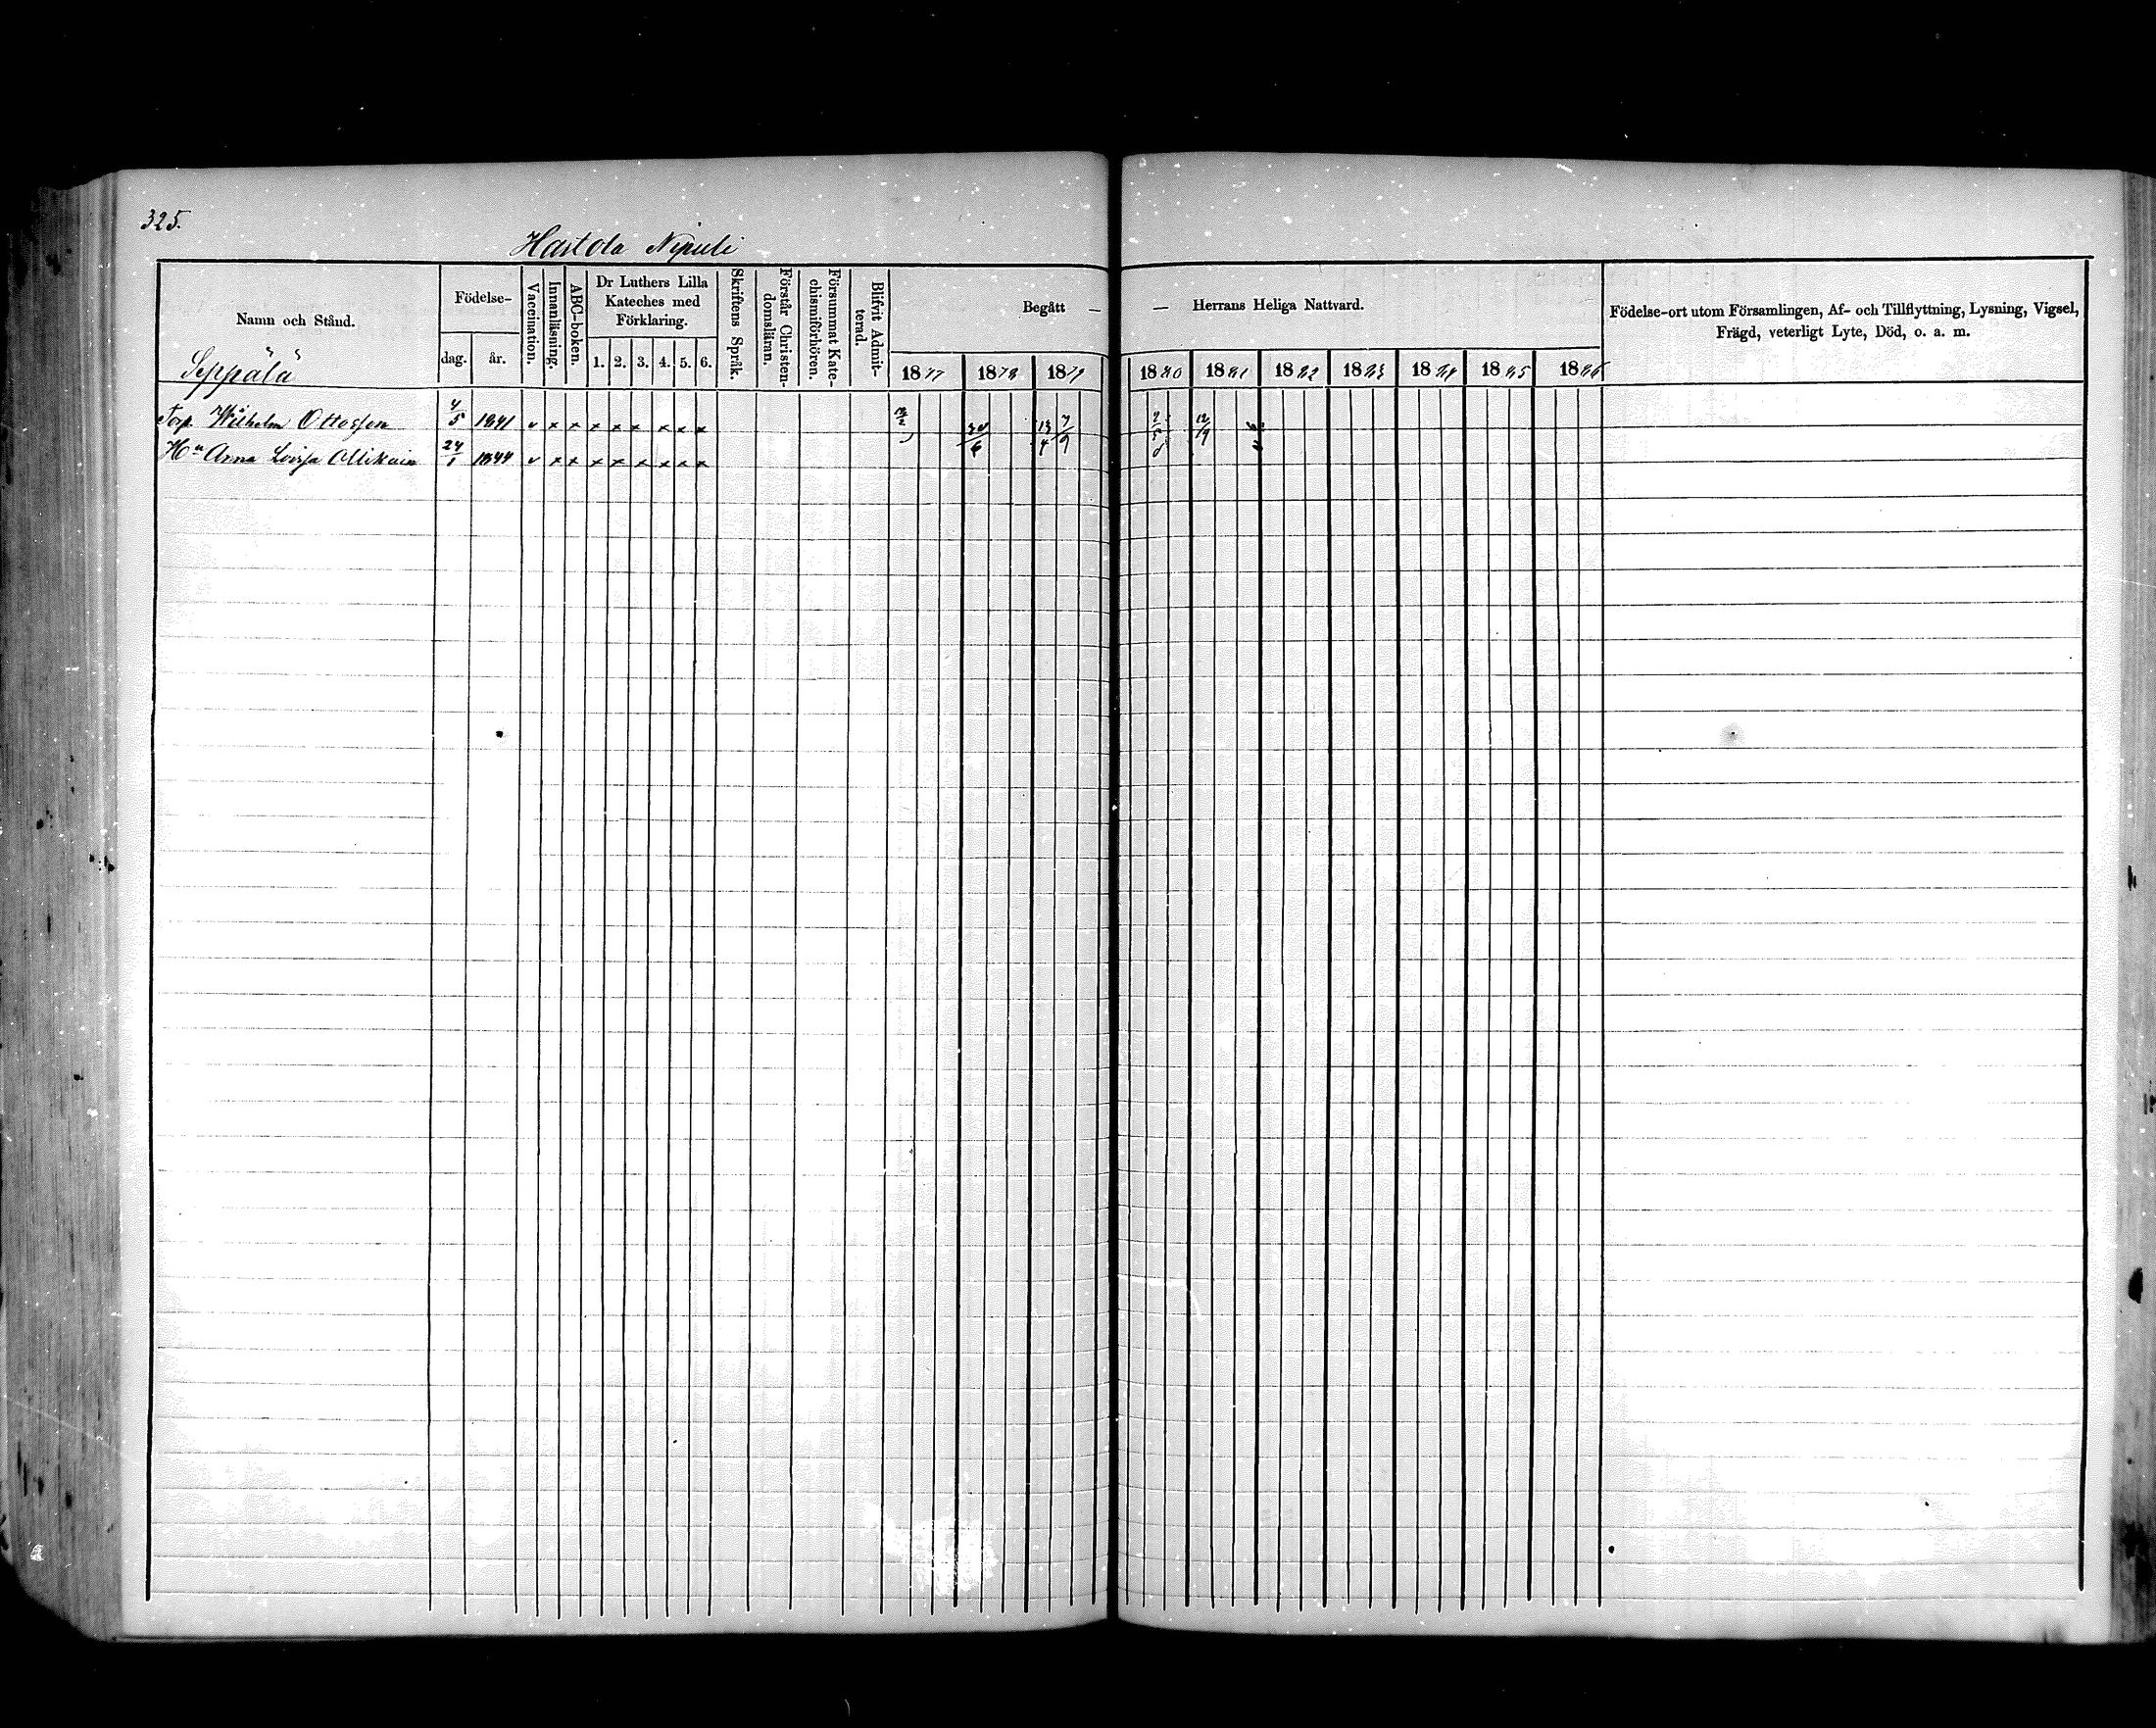 325.
Hartola Nipuli
Namn och Stånd.
Födelse-
dag. år.
Vaccination.
Innanläsning.
ABC-boken.
Dr Luthers Lilla
Kateches med
Förklaring.
1. 2. 3. 4. 5. 6.
Skriftens Språk.
Förstår Christen-
domsläran.
Försummat Kate-
chismiförhören.
Blifvit Admit-
terad.
Begått — — Herrans Heliga Nattvard.
1877 1878 1879 1880 1881 1882 1883 1884 1885 1886
Födelse-ort utom Församlingen, Af- och Tillflyttning, Lysning, Vigsel,
Frägd, veterligt Lyte, Död, o. a. m.
Seppälä
Torp. Wilhelm Ottosson 4/5 1841 v x x x x x x x x 30/6 13/4 7/9 12/19
Hu Anna Lovisa Ollikain 24/1 1844 v x x x x x x x x